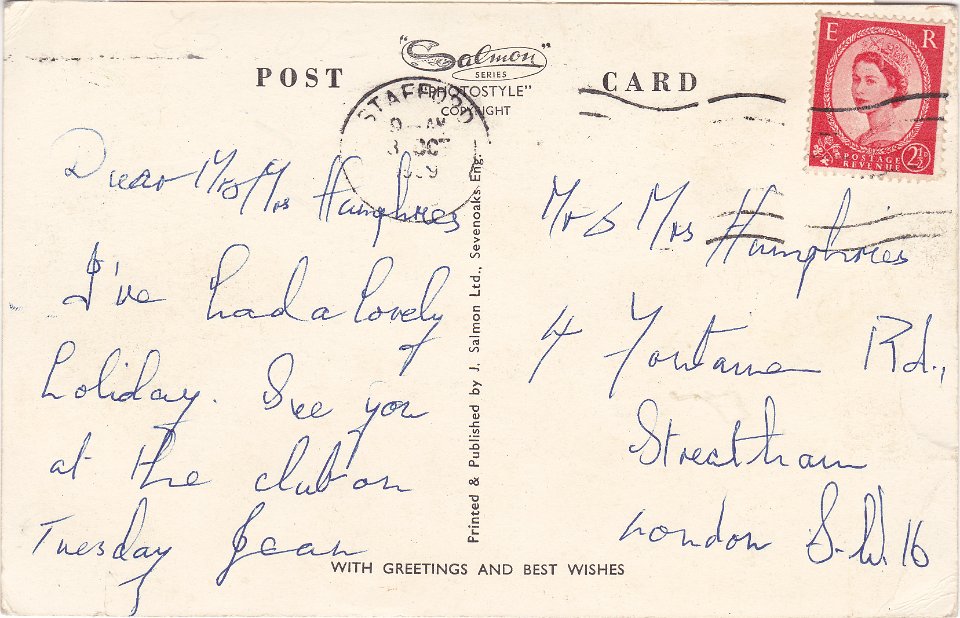 POST CARD
"Salmon"
SERIES
"PHOTOSTYLE"
COPYRIGHT
STAFFORD
AM
OCT
E R
POSTAGE
REVENUE
2½D
Dear Mr & Mrs Humphries
I've had a lovely
holiday. See you
at the club on
Tuesday Jean
Printed & Published by J. Salmon Ltd., Sevenoaks, Eng.
Mr & Mrs Humphries
4
Rd.,
Streatham
London S.W.16
WITH GREETINGS AND BEST WISHES